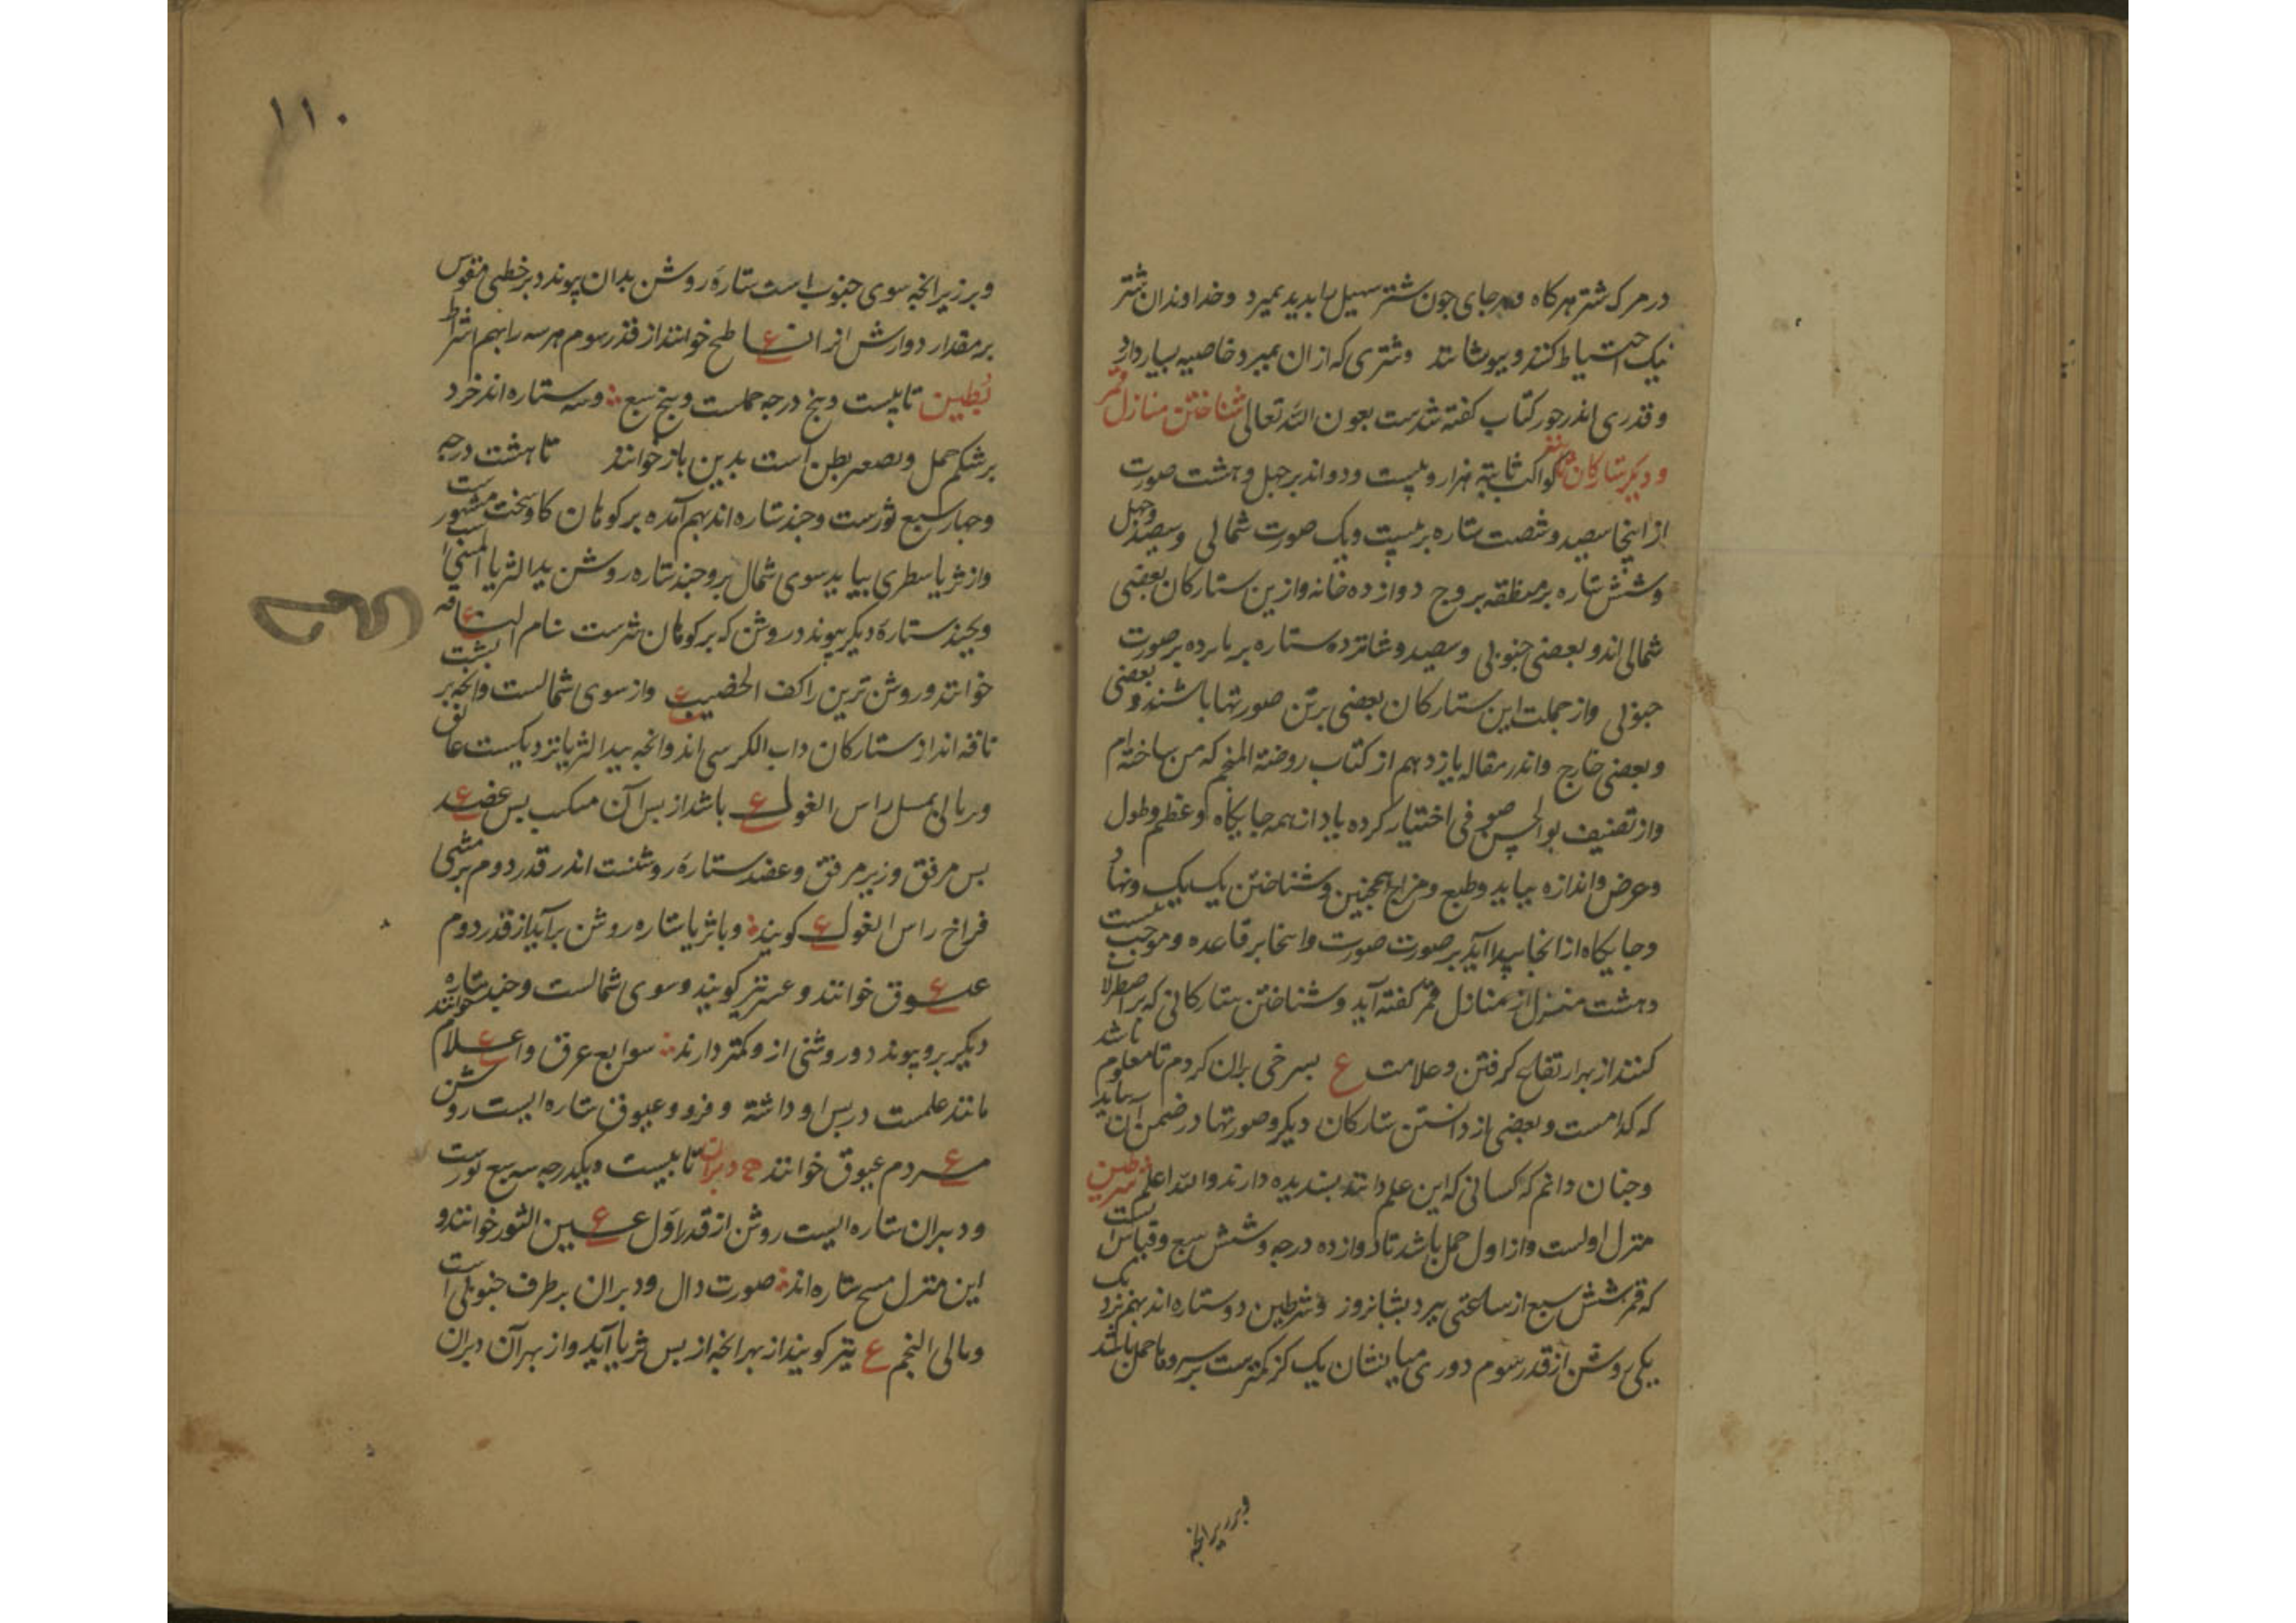 در مرک شتر هرکاه وهرجای جون شتر سهیل را بدید بمیرد وخداوندان شتر
نیک احتیاط کنند وبپوشانند وشتری که ازان بمیرد خاصیه بسیار دارد
وقدری اندر جور کتاب کفته شدست بعون الله تعالی شناختن منازل قمر
ودیکر ستارکان کواکب ثابته هزار وبیست ودواند بر جهل وهشت صورت
از اینجا سیصد وشصت ستاره بر بیست ویک صورت شمالی وسیصد وجهل
وشش ستاره بر منطقه بروج دوازده خانه وازین ستارکان بعضی
شمالی اند وبعضی جنوبی وسیصد وشانزده ستاره بر بانزده صورت
جنوبی واز جملت این ستارکان بعضی بر تن صورتها باشند وبعضی
وبعضی خارج واندر مقاله یازدهم از کتاب روضة المنجم که من ساخته‌ام
واز تصنیف بوالحسن صوفی اختیار کرده یاد از همه جایکاه او عظم وطول
وعرض واندازه بیاید وطبع ومزاج همجنین وشناختن یک یک ونهاد
وجایکاه از انجا پیدا آید بر صورت صورت واینجا بر قاعده وموجب بیست
وهشت منزل از منازل قمر کفته آید وشناختن ستارکانی که بر اصطرلاب
کنند از بهر ارتفاع کرفتن وعلامت ع بسرخی بران کردم تا معلوم باشد
که کدامست وبعضی از دانستن ستارکان دیکر وصورتها در ضمن آن بیاید
وجنان دانم که کسانی که این علم دانند بسندیده دارند والله اعلم شرطین
منزل اولست واز اول حمل باشد تا دوازده درجه وشش سبع وقیاس آنست
که قمر شش سبع از ساعتی ببرد بشبانروز وشرطین دو ستاره اند بهم نزدیک
یکی روشن از قدر سوم دوری میانشان یک کز کمترست بر سر وها حمل باشد
وبر زیر انجه
۱۱۰
وبر زیر انجه سوی جنوب است ستاره روشن بدان پیوندد بر خطی مقوس
بر مقدار دوارش از ان ع ناطح خوانند از قدر سوم هر سه را بهم اشراط
بُطین تا بیست وبنج درجه حملست وبنج سبع وسه ستاره اند خرد
بر شکم حمل وتصغیر بطن است بدین باز خوانند تا هشت درجه
وجهار سبع ثورست وجند ستاره اند بهم آمده بر کوهان کاو سخت مشهورست
واز ثریا سطری بیاید سوی شمال برو جند ستاره روشن ید الثریا الیمنی است
وبجند ستاره دیکر پیوندد روشن که بر کوهان شترست بنام الناقه ع
خوانند وروشن ترین را کف الخضیب ع واز سوی شمالست وانجه بر بشت
ناقه اند از ستارکان ذات الکرسی اند وانجه بید الثریا نزدیکست عاتق
راس الغول ع باشد از بس آن منکب بس عضد ع
بس مرفق وزیر مرفق وعضد ستاره روشنست اندر قدر دوم
فراخ راس الغول ع کویند وبا ثریا ستاره روشن برآید از قدر دوم
عیوق ع خوانند وعنز نیز کویند وسوی شمالست وجند ستاره
دیکر برو پیوندد وروشنی ازو کمتر دارند توابع عیوق واعلام ع خوانند
مانند علمست در بس او داشته وفرو وعیوق ستاره ایست روشن
مردم عیوق ع خوانند دبران تا بیست ویکدرجه سه سبع ثورست
ودبران ستاره ایست روشن از قدر اول عین الثور ع خوانند و
این منزل بنج ستاره اند صورت دال ودبران بر طرف جنوبی است
وتالی النجم ع نیز کویند از بهر انجه از بس ثریا آید واز بهر آن دبران